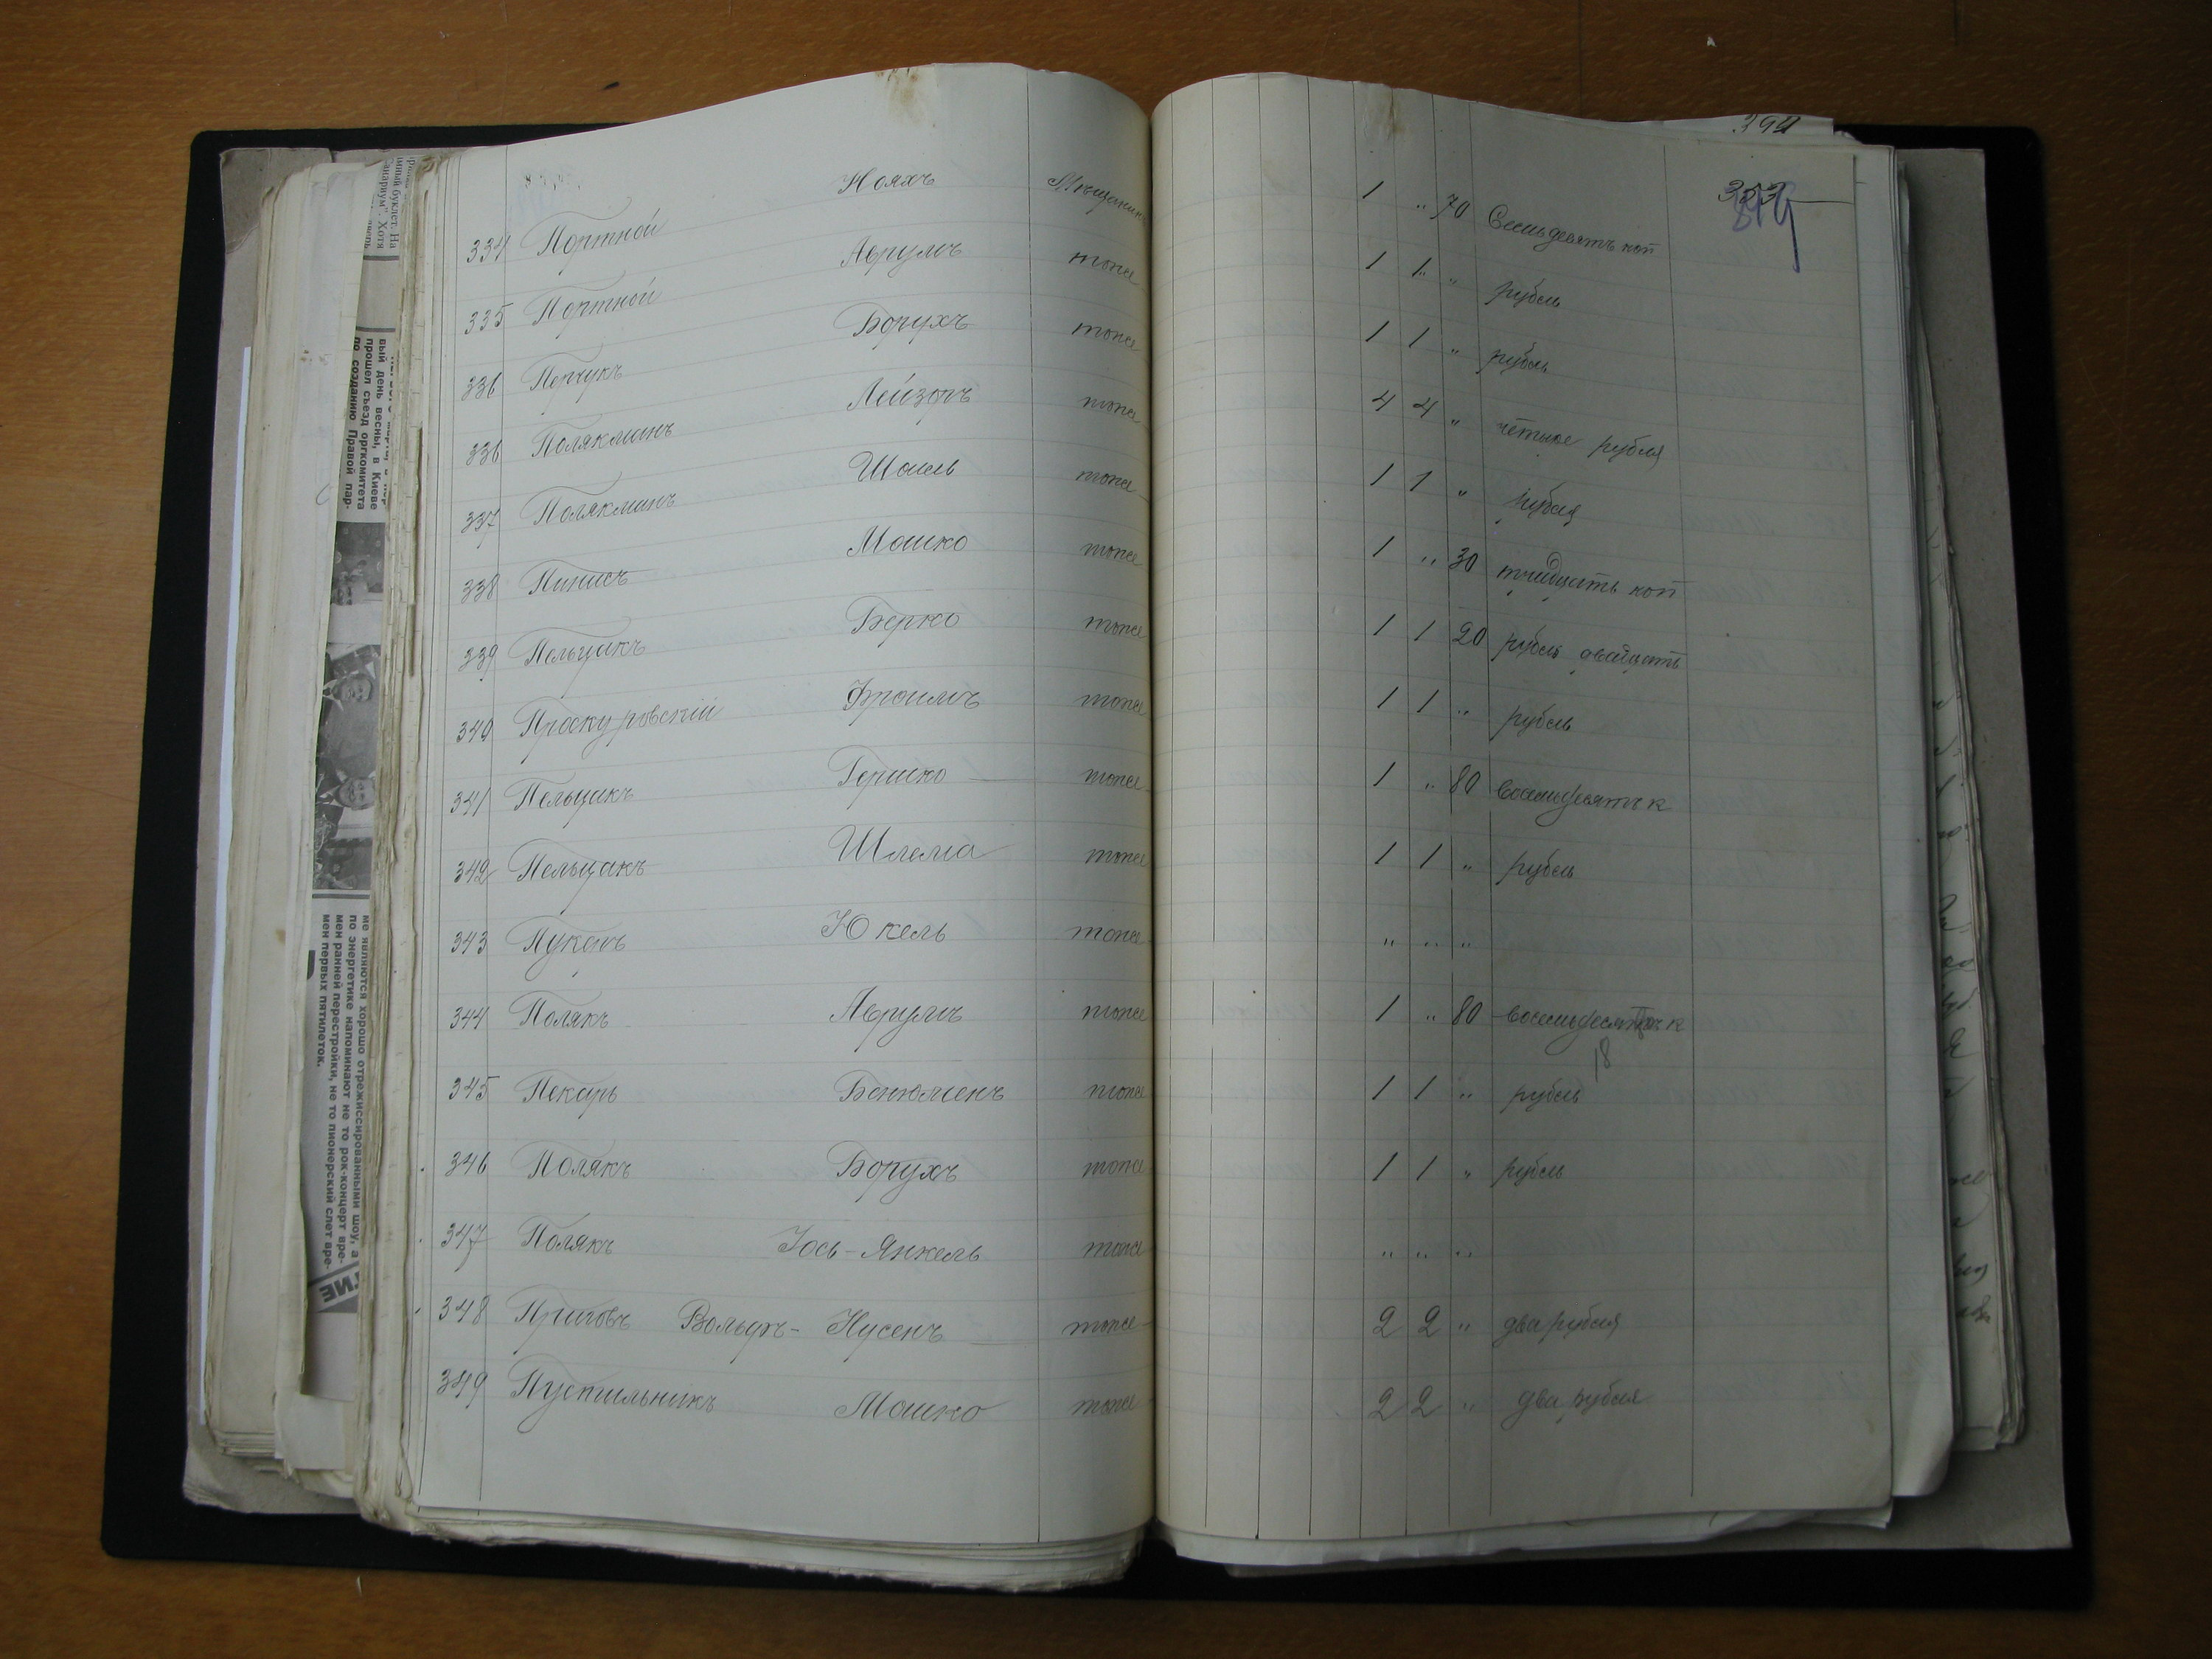 394
353
334 Портной Нояхъ Мѣщанинъ 1 " 70 Семьдесятъ коп
335 Портной Аврумъ тоже 1 1 " рубль
336 Перчукъ Борухъ тоже 1 1 " рубль
336 Полякманъ Лейзоръ тоже 4 4 " четыре рубля
337 Полякманъ Шоиль тоже 1 1 " рубля
338 Пинисъ Мошко тоже 1 " 30 тридцать коп
339 Пельцакъ Берко тоже 1 1 20 рубль двайцать
340 Проскуровскій Фроимъ тоже 1 1 " рубль
341 Пельцакъ Гершко тоже 1 " 80 Восемьдесятъ к
342 Пельцакъ Шлема тоже 1 1 " рубль
343 Пуканъ Юкель тоже " " "
344 Полякъ Аврумъ тоже 1 " 80 восемьдесятъ к
18
345 Пекарь Бенюменъ тоже 1 1 " рубль
346 Полякъ Борухъ тоже 1 1 " рубль
347 Полякъ Іось-Янкель тоже " " "
348 Вольфъ-Нусенъ тоже 2 2 " два рубля
349 Пустыльникъ Мошко тоже 2 2 " два рубля
вый день весны, в Киеве
прошел съезд оргкомитета
по созданию Правой пар-
ме являются хорошо отрежиссированными шоу, а
по энергетике напоминают не то рок-концерт вре-
мен ранней перестройки, не то пионерский слет вре-
мен первых пятилеток.